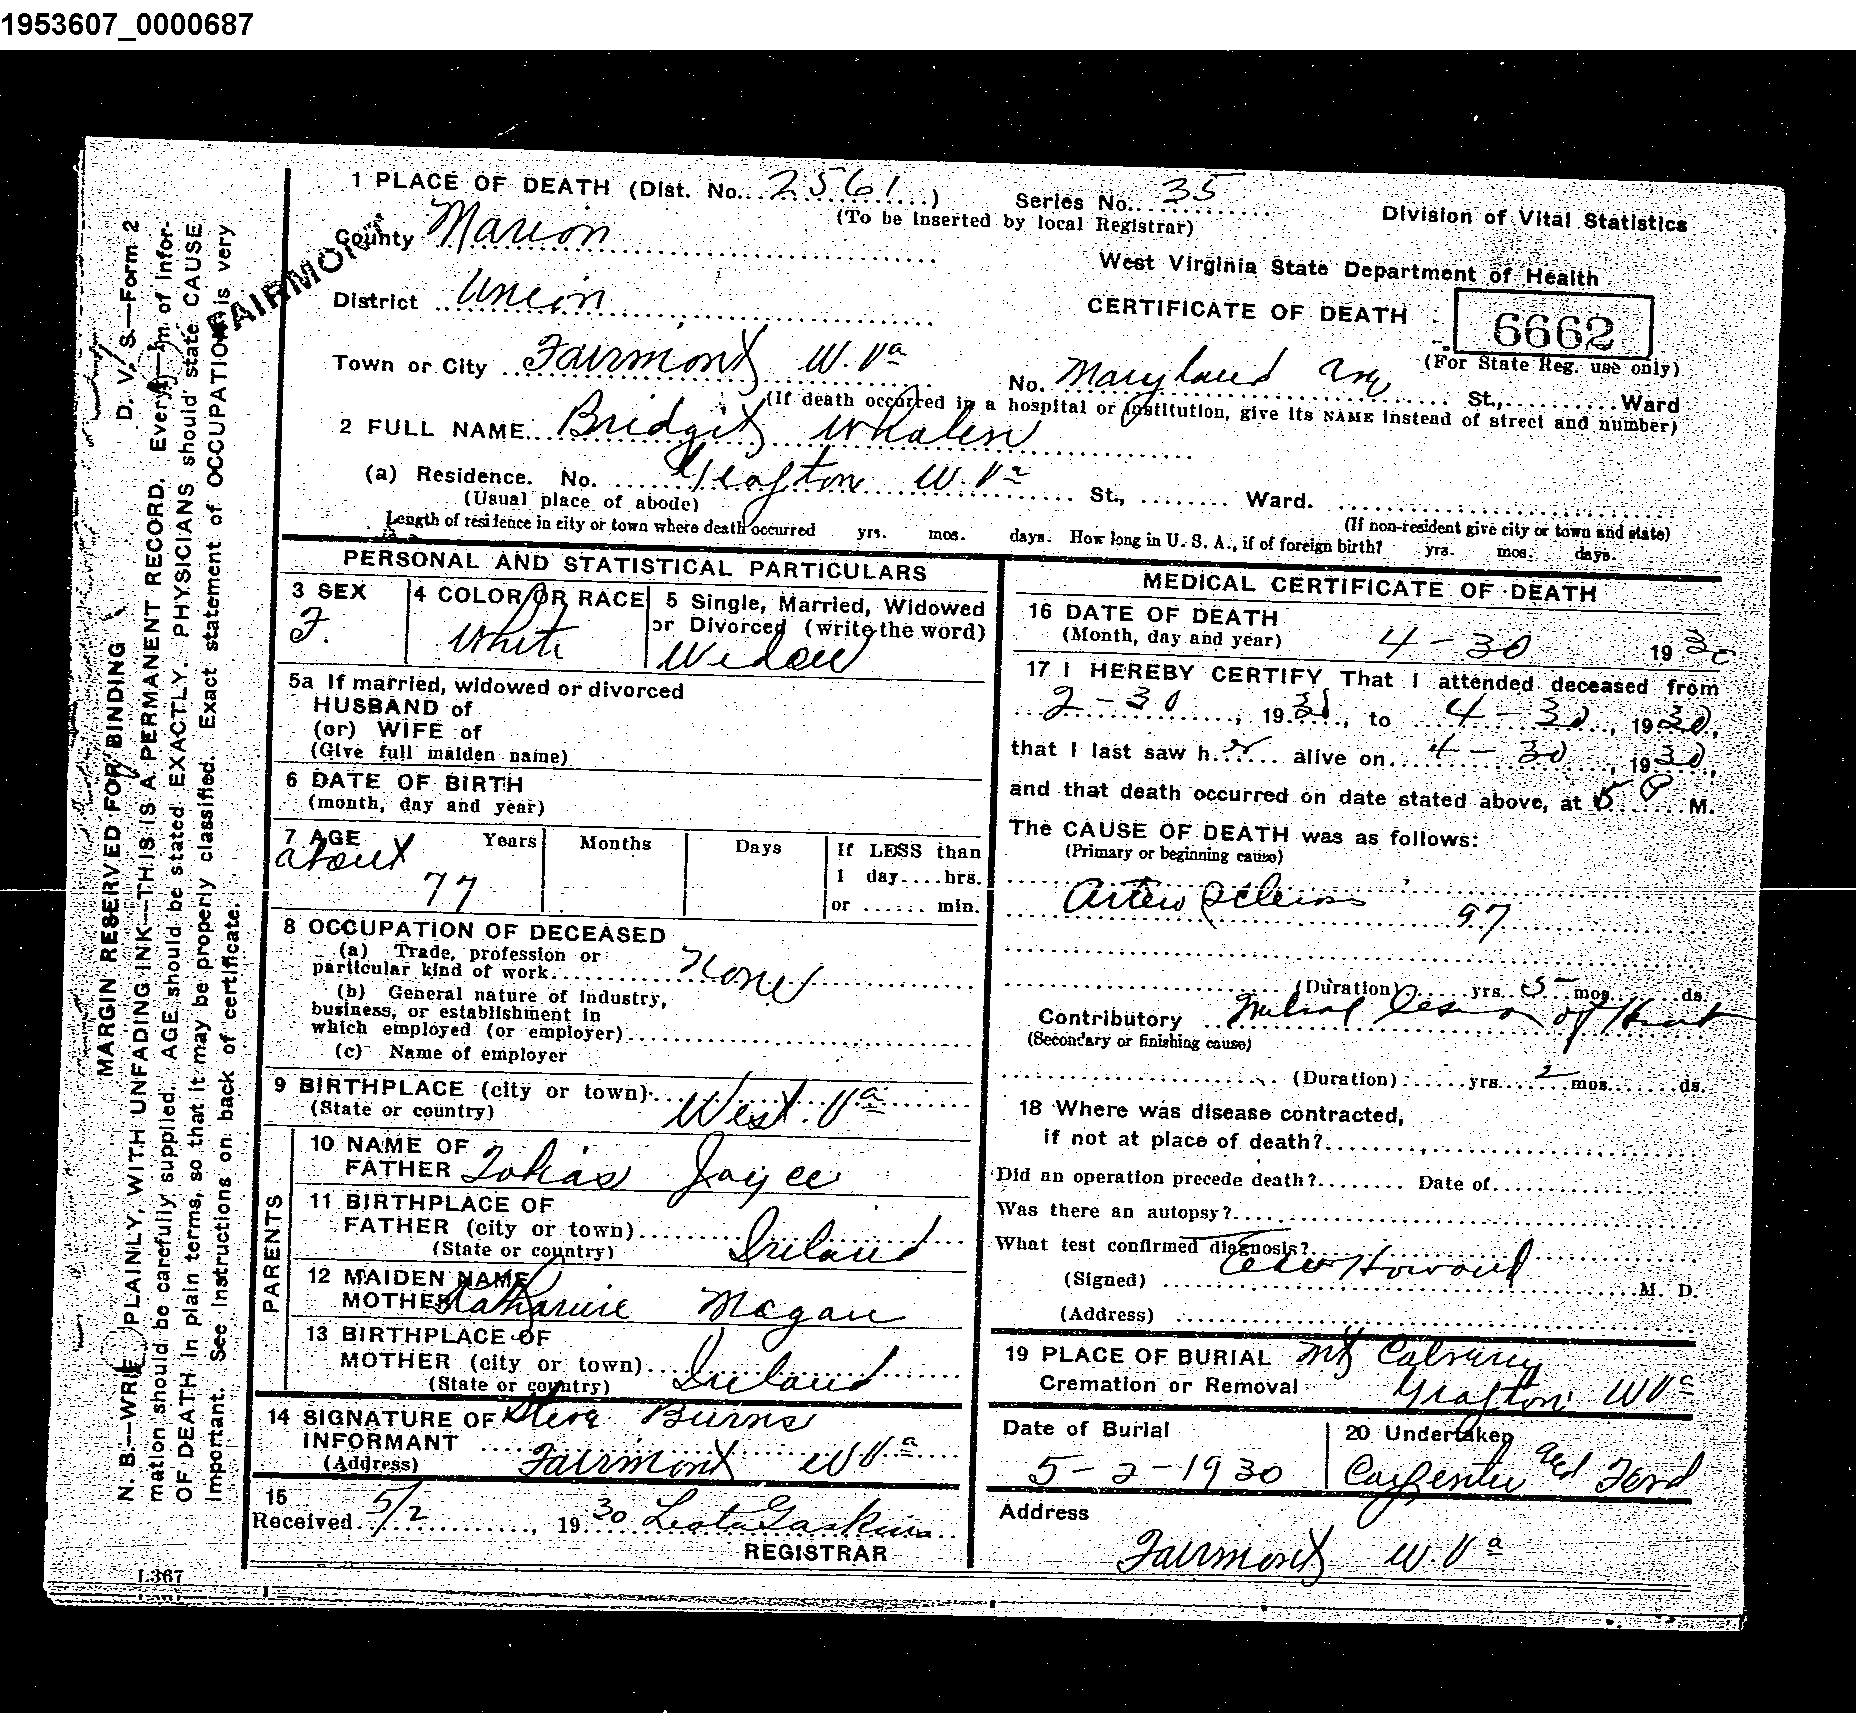 1953607_0000687
1 PLACE OF DEATH (Dist. No. 2561)
Series No. 35
(To be inserted by local Registrar)
Division of Vital Statistics
County Marion
FAIRMONT
West Virginia State Department of Health
District Union
CERTIFICATE OF DEATH
6662
(For State Reg. use only)
Town or City Fairmont W. Va
No. Maryland Ave St., Ward
(If death occurred in a hospital or institution, give its NAME instead of street and number)
2 FULL NAME Bridgit Whalen
(a) Residence. No. Grafton W. Va St., Ward.
(Usual place of abode)
(If non-resident give city or town and state)
Length of residence in city or town where death occurred yrs. mos. days. How long in U. S. A., if of foreign birth? yrs. mos. days.
PERSONAL AND STATISTICAL PARTICULARS
3 SEX
F.
4 COLOR OR RACE
White
5 Single, Married, Widowed
or Divorced (write the word)
Widow
5a If married, widowed or divorced
HUSBAND of
(or) WIFE of
(Give full maiden name)
6 DATE OF BIRTH
(month, day and year)
7 AGE Years Months Days
about
77
If LESS than
1 day....hrs.
or ...... min.
8 OCCUPATION OF DECEASED
(a) Trade, profession or
particular kind of work None
(b) General nature of industry,
business, or establishment in
which employed (or employer)
(c) Name of employer
9 BIRTHPLACE (city or town)
(State or country) West. Va
PARENTS
10 NAME OF
FATHER Tobias Joyce
11 BIRTHPLACE OF
FATHER (city or town)
(State or country) Ireland
12 MAIDEN NAME
MOTHER Katharine Magan
13 BIRTHPLACE OF
MOTHER (city or town)
(State or country) Ireland
14 SIGNATURE OF Steve Burns
INFORMANT
(Address) Fairmont W Va
15
Received 5/2, 1930 Leota Gaskins
REGISTRAR
MEDICAL CERTIFICATE OF DEATH
16 DATE OF DEATH
(Month, day and year) 4-30 1930
17 I HEREBY CERTIFY That I attended deceased from
2-30, 1930, to 4-30, 1930,
that I last saw her alive on 4-30, 1930,
and that death occurred on date stated above, at 5 P M.
The CAUSE OF DEATH was as follows:
(Primary or beginning cause)
Arterio Scleros
97
(Duration) yrs. 5 mos. ds.
Contributory Mitral Lesion of Heart
(Secondary or finishing cause)
(Duration) yrs. 2 mos. ds.
18 Where was disease contracted,
if not at place of death?
Did an operation precede death? Date of
Was there an autopsy?
What test confirmed diagnosis?
(Signed) Howard M. D.
(Address)
19 PLACE OF BURIAL Mt Calvary
Cremation or Removal Grafton W Va
Date of Burial
5-2-1930
20 Undertaker
Carpenter and Ford
Address
Fairmont W. Va
D. V. S.—Form 2
MARGIN RESERVED FOR BINDING
N. B.—WRITE PLAINLY, WITH UNFADING INK—THIS IS A PERMANENT RECORD. Every item of infor-
mation should be carefully supplied. AGE should be stated EXACTLY. PHYSICIANS should state CAUSE
OF DEATH in plain terms, so that it may be properly classified. Exact statement of OCCUPATION is very
important. See instructions on back of certificate.
L367